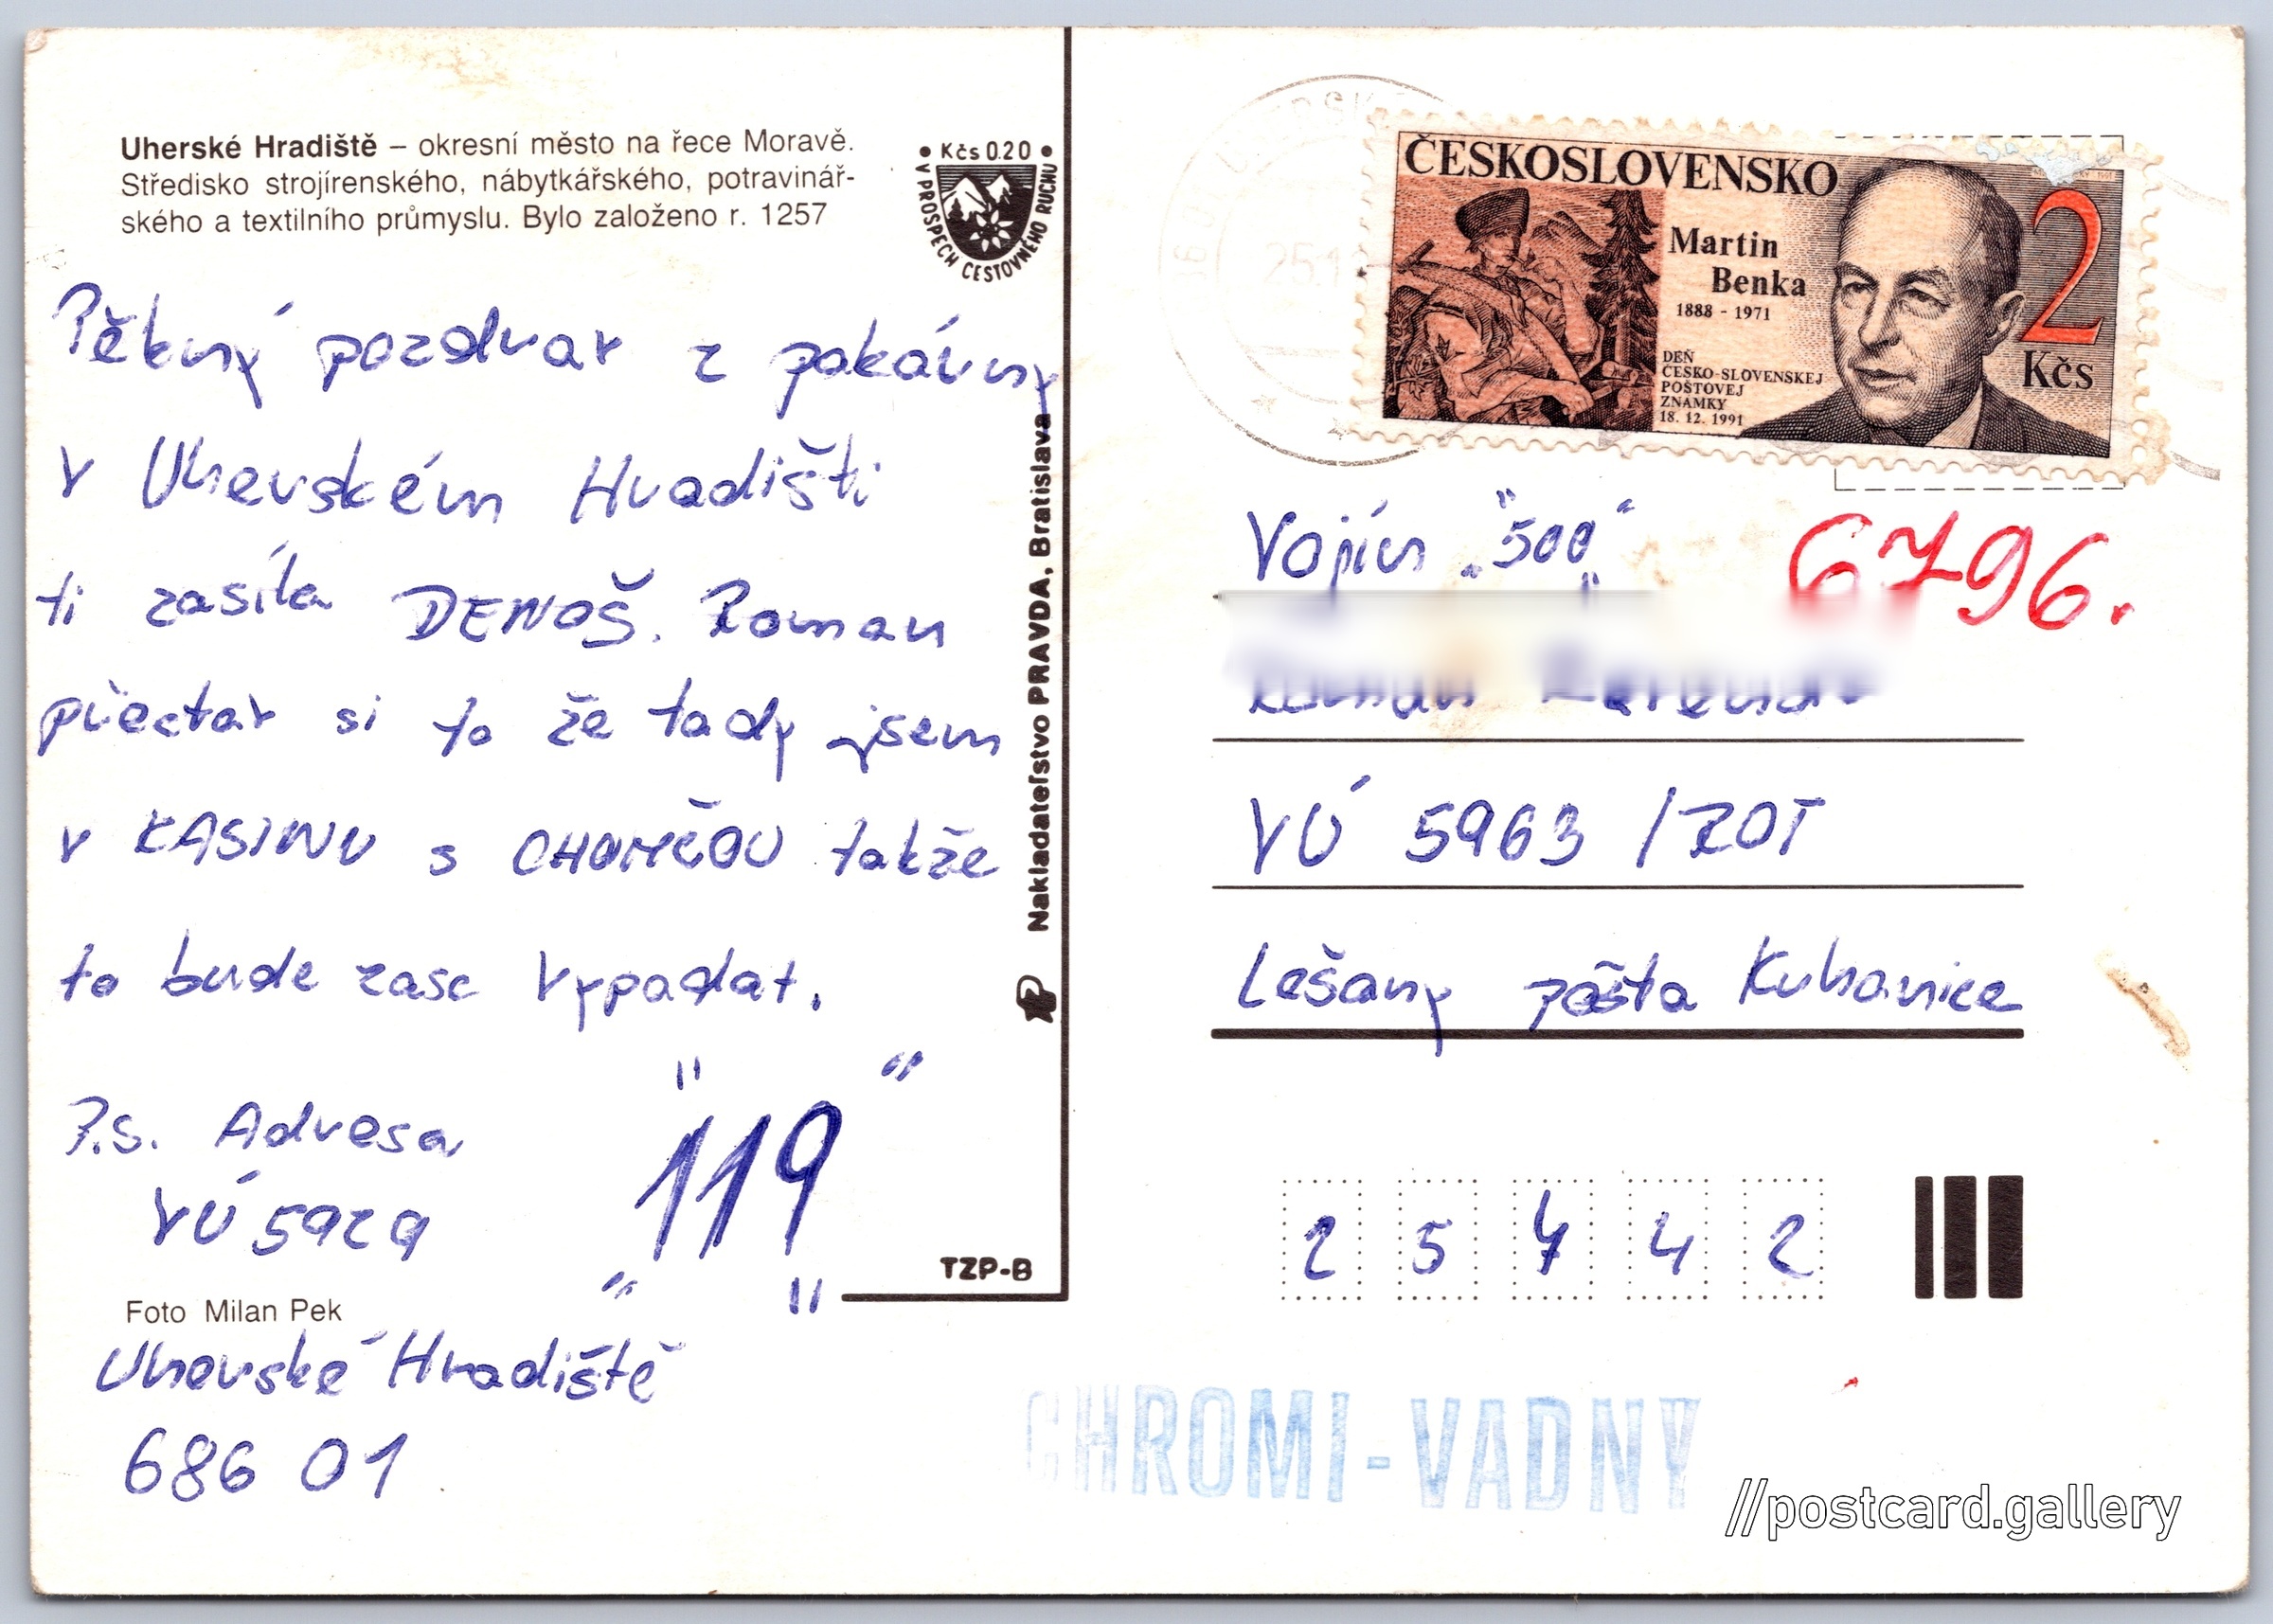 Uherské Hradiště – okresní město na řece Moravě.
Středisko strojírenského, nábytkářského, potravinář-
ského a textilního průmyslu. Bylo založeno r. 1257
• Kčs 0.20 •
V PROSPĚCH CESTOVNÉHO RUCHU
Pěkný pozdrav z pakárny
v Uherském Hradišti
ti zasíla DENOŠ. Roman
přectav si to že tady jsem
v KASINU s CHOMČOU takže
to bude zase vypadat.
P.s. Adresa
VÚ 5929
"119"
Foto Milan Pek
Uherské Hradiště
686 01
TZP-B
Nakladateľstvo PRAVDA, Bratislava
ČESKOSLOVENSKO
Martin
Benka
1888 - 1971
DEŇ
ČESKO-SLOVENSKEJ
POŠTOVEJ
ZNÁMKY
18. 12. 1991
2
Kčs
25.1
Vojín "500"
6796.
VÚ 5963 / ROT
Lešany pošta Kuhanice
2 5 4 4 2
CHROMI-VADNÝ
//postcard.gallery